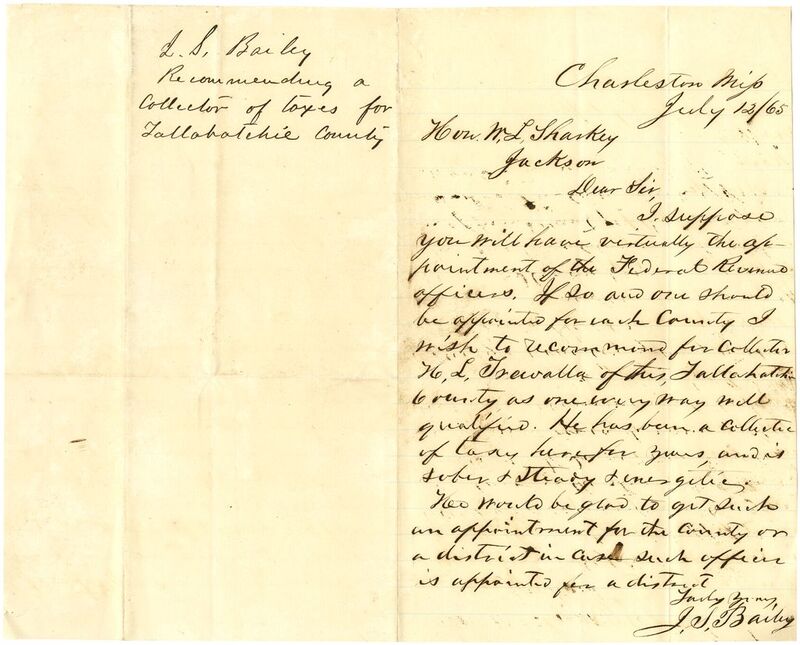 J. S. Bailey
Recommending a
Collector of taxes for
Tallahatchie County
Charleston Miss
July 12/65
Hon. W. L. Sharkey
Jackson
Dear Sir,
I suppose
you will have virtually the ap-
pointment of the Federal Revenue
officers. If so and one should
be appointed for each County I
wish to recommend for Collector
H. L. Trewalla of this, Tallahatchie
County as one every way well
qualified. He has been a collector
of taxes here for years, and is
sober & steady & energetic.
He would be glad to get such
an appointment for the County or
a district in case such officer
is appointed for a district
Truly Yours,
J. S. Bailey